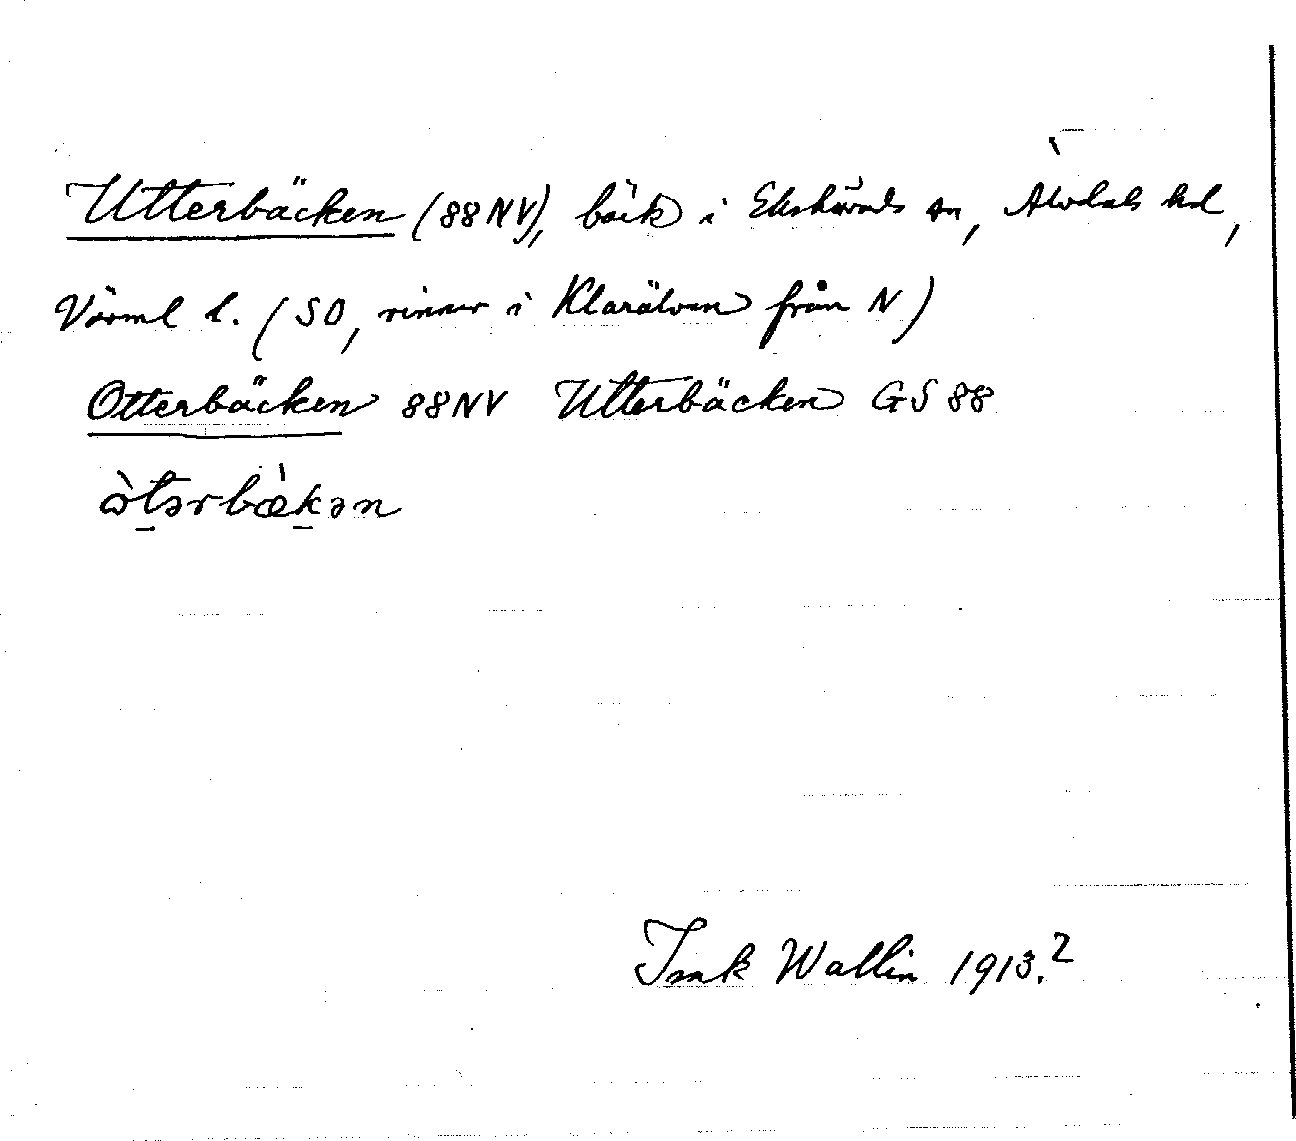 Utterbäcken (88NV), bäck i Ekshärads sn, Älvdals hd,
Värml l. (SO, rinner i Klarälven från N)
Otterbäcken 88NV Utterbäcken GS 88
òt̲ərbæ̀k̲ən
Isak Wallin 1913.²